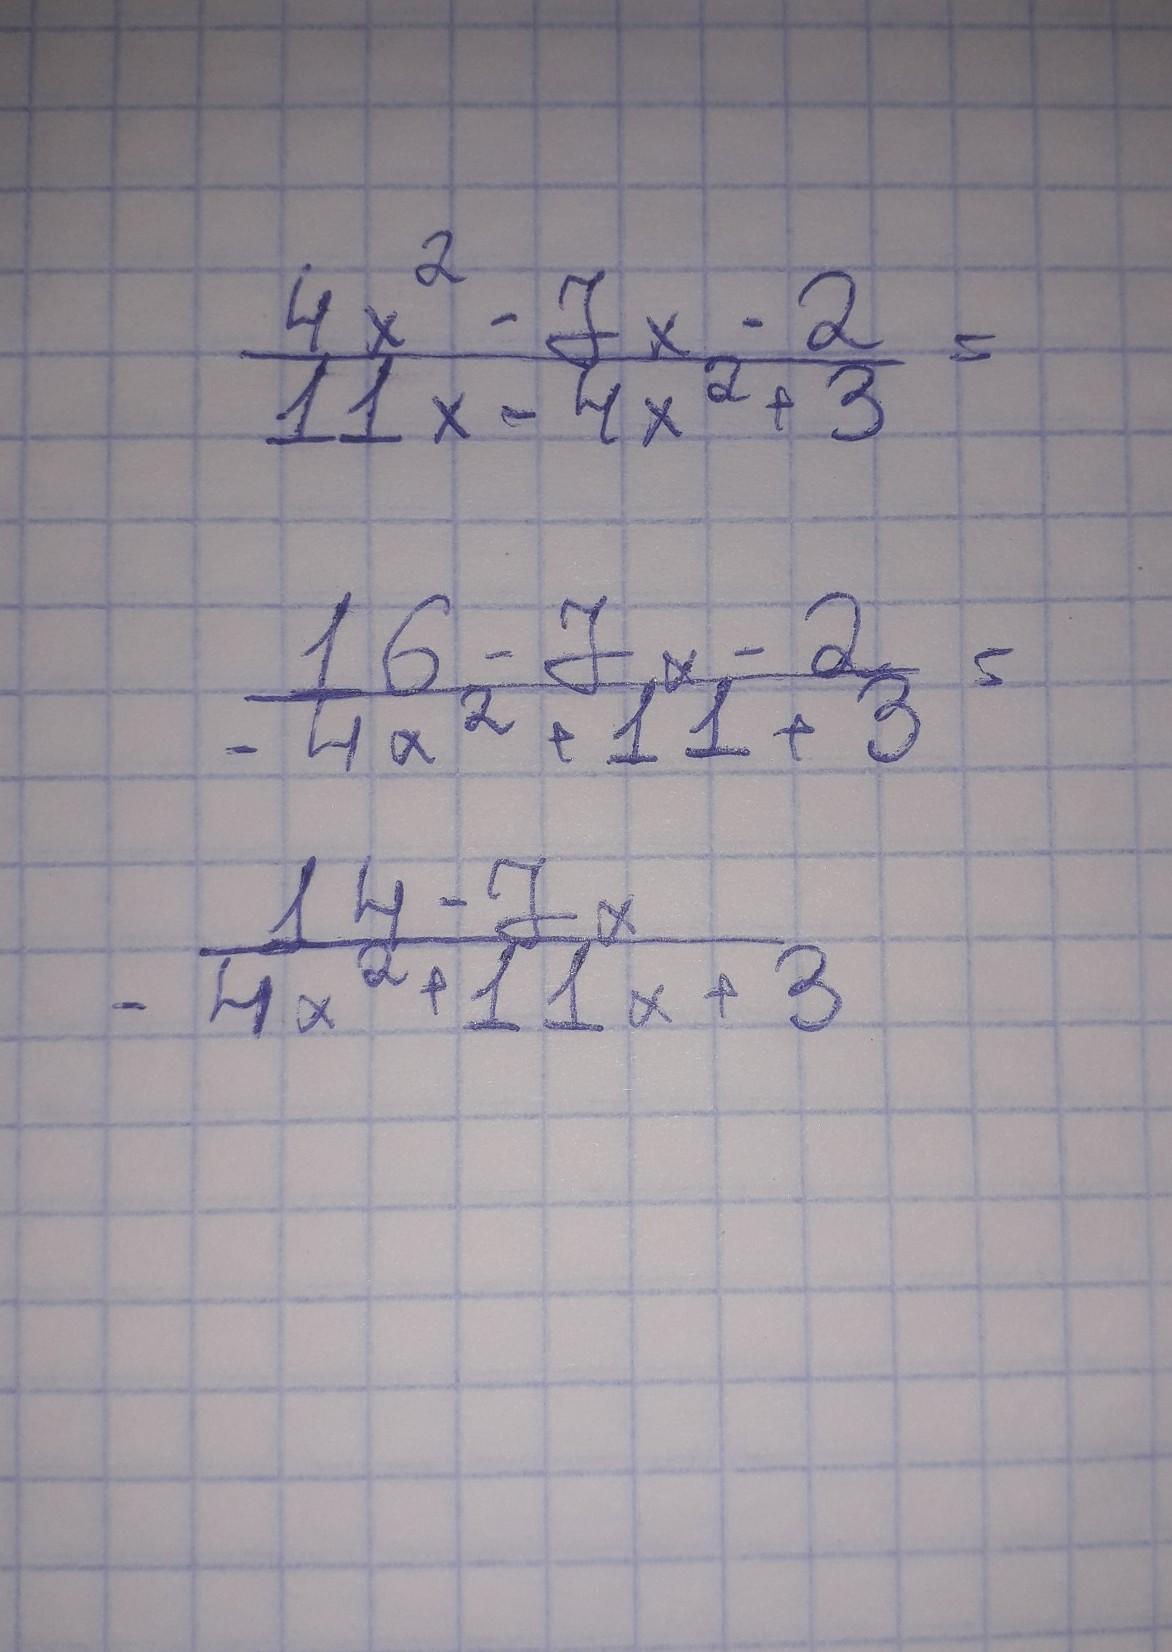 4x² - 7x - 2 =
11x - 4x² + 3
16 - 7x - 2 =
- 4x² + 11 + 3
14 - 7x
- 4x² + 11x + 3